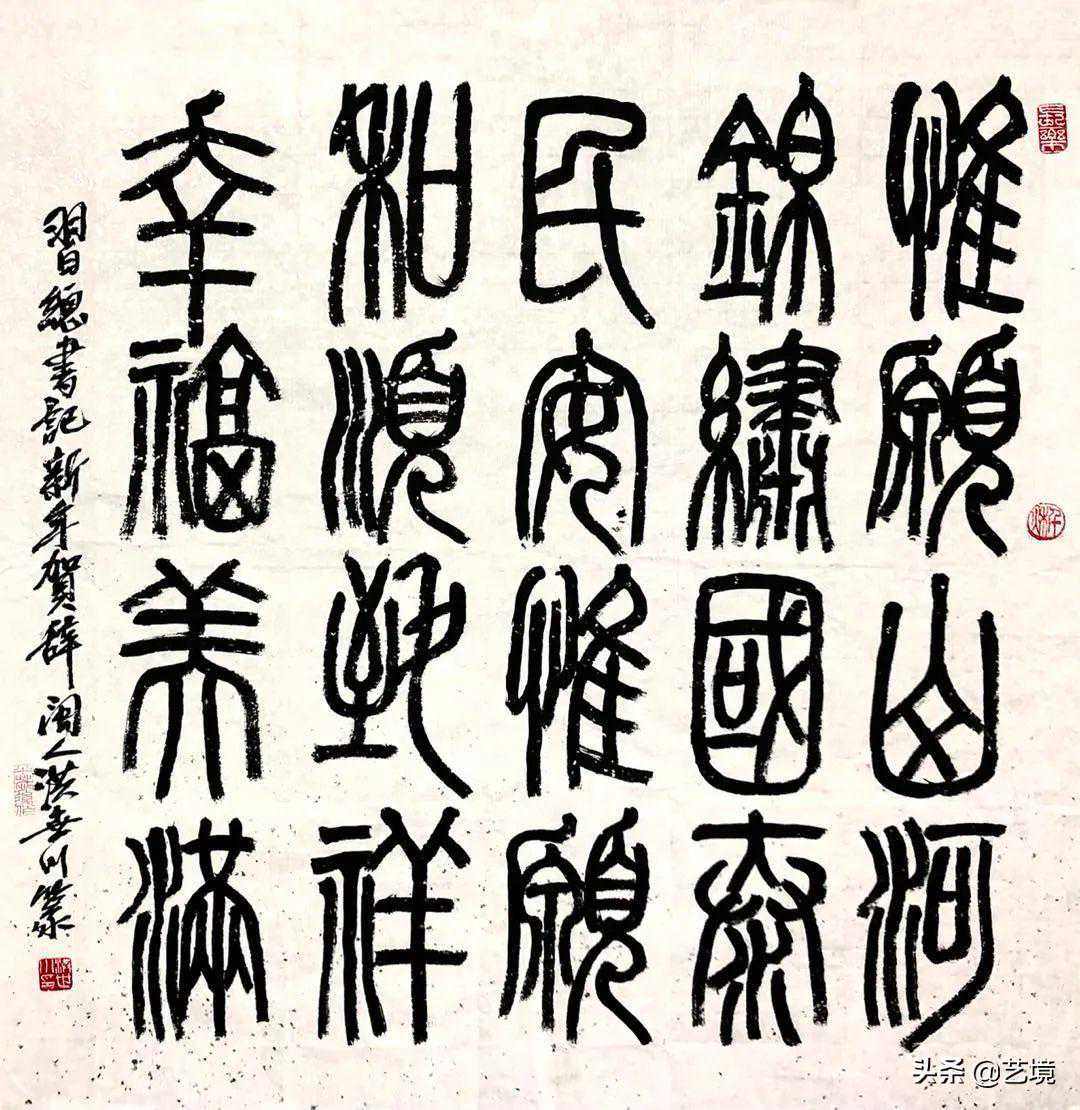 惟願山河
錦繡國泰
民安惟願
和順致祥
幸福美滿
習總書記新年賀辭閩人洪世川篆
長樂
头条 @艺境